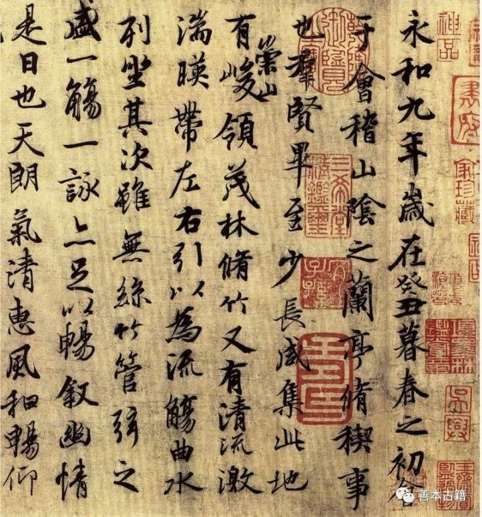 永和九年歲在癸丑暮春之初會
于會稽山陰之蘭亭脩稧事
也羣賢畢至少長咸集此地
有崇山峻領茂林脩竹又有清流激
湍暎帶左右引以為流觴曲水
列坐其次雖無絲竹管弦之
盛一觴一詠亦足以暢叙幽情
是日也天朗氣清惠風和暢仰
神品
善本古籍